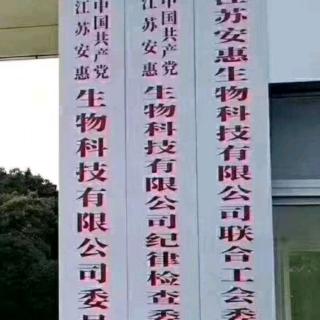 中国共产党
江苏安惠
生物科技有限公司委员
中国共产党
江苏安惠
生物科技有限公司纪律检查委
江苏安惠生物科技有限公司联合工会委